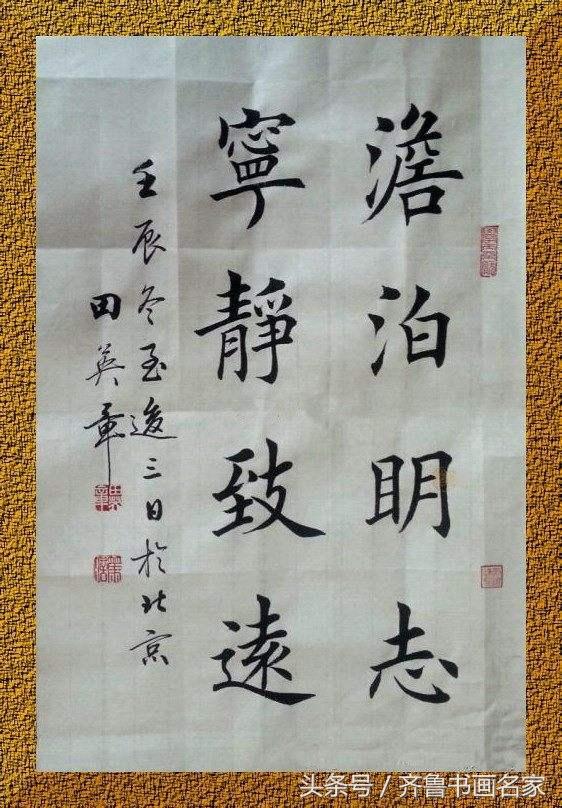 澹泊明志
寧靜致遠
壬辰冬至後三日於北京
田英章
头条号／齐鲁书画名家